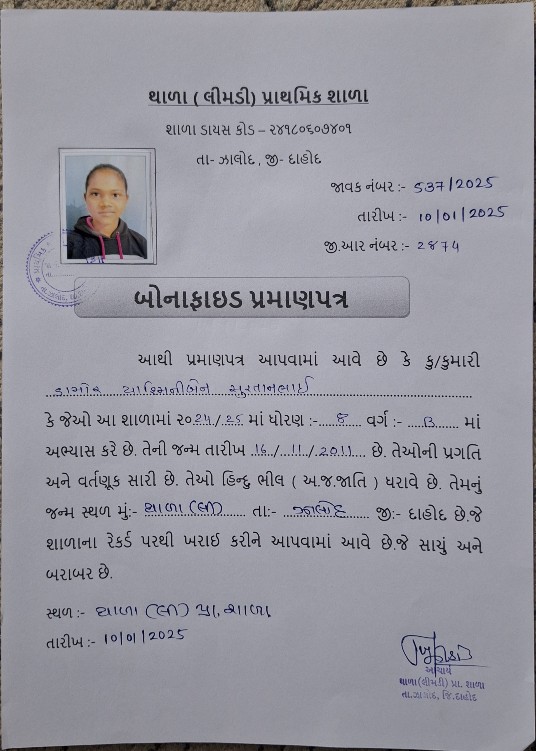 થાળા ( લીમડી) પ્રાથમિક શાળા
શાળા ડાયસ કોડ – ૨૪૧૮૦૬૦૭૪૦૧
તા- ઝાલોદ , જી- દાહોદ
જાવક નંબર :- 537/2025
તારીખ :- 10/01/2025
જી.આર નંબર :- 2874
બોનાફાઇડ પ્રમાણપત્ર
આથી પ્રમાણપત્ર આપવામાં આવે છે કે કુ/કુમારી
ડામોર યામિનીબેન સુરતાનભાઈ
કે જેઓ આ શાળામાં ૨૦24/25 માં ધોરણ :- 8 વર્ગ :- B માં
અભ્યાસ કરે છે. તેની જન્મ તારીખ 16/11/2011 છે. તેઓની પ્રગતિ
અને વર્તણૂક સારી છે. તેઓ હિન્દુ ભીલ ( અ.જ.જાતિ ) ધરાવે છે. તેમનું
જન્મ સ્થળ મું:- થાળા (લી) તા:- ઝાલોદ જી:- દાહોદ છે.જે
શાળાના રેકર્ડ પરથી ખરાઈ કરીને આપવામાં આવે છે.જે સાચું અને
બરાબર છે.
સ્થળ :- થાળા (લી) પ્રા. શાળા
તારીખ :- 10/01/2025
આચાર્ય
થાળા(લીમડી) પ્રા. શાળા
તા.ઝાલોદ, જિ.દાહોદ